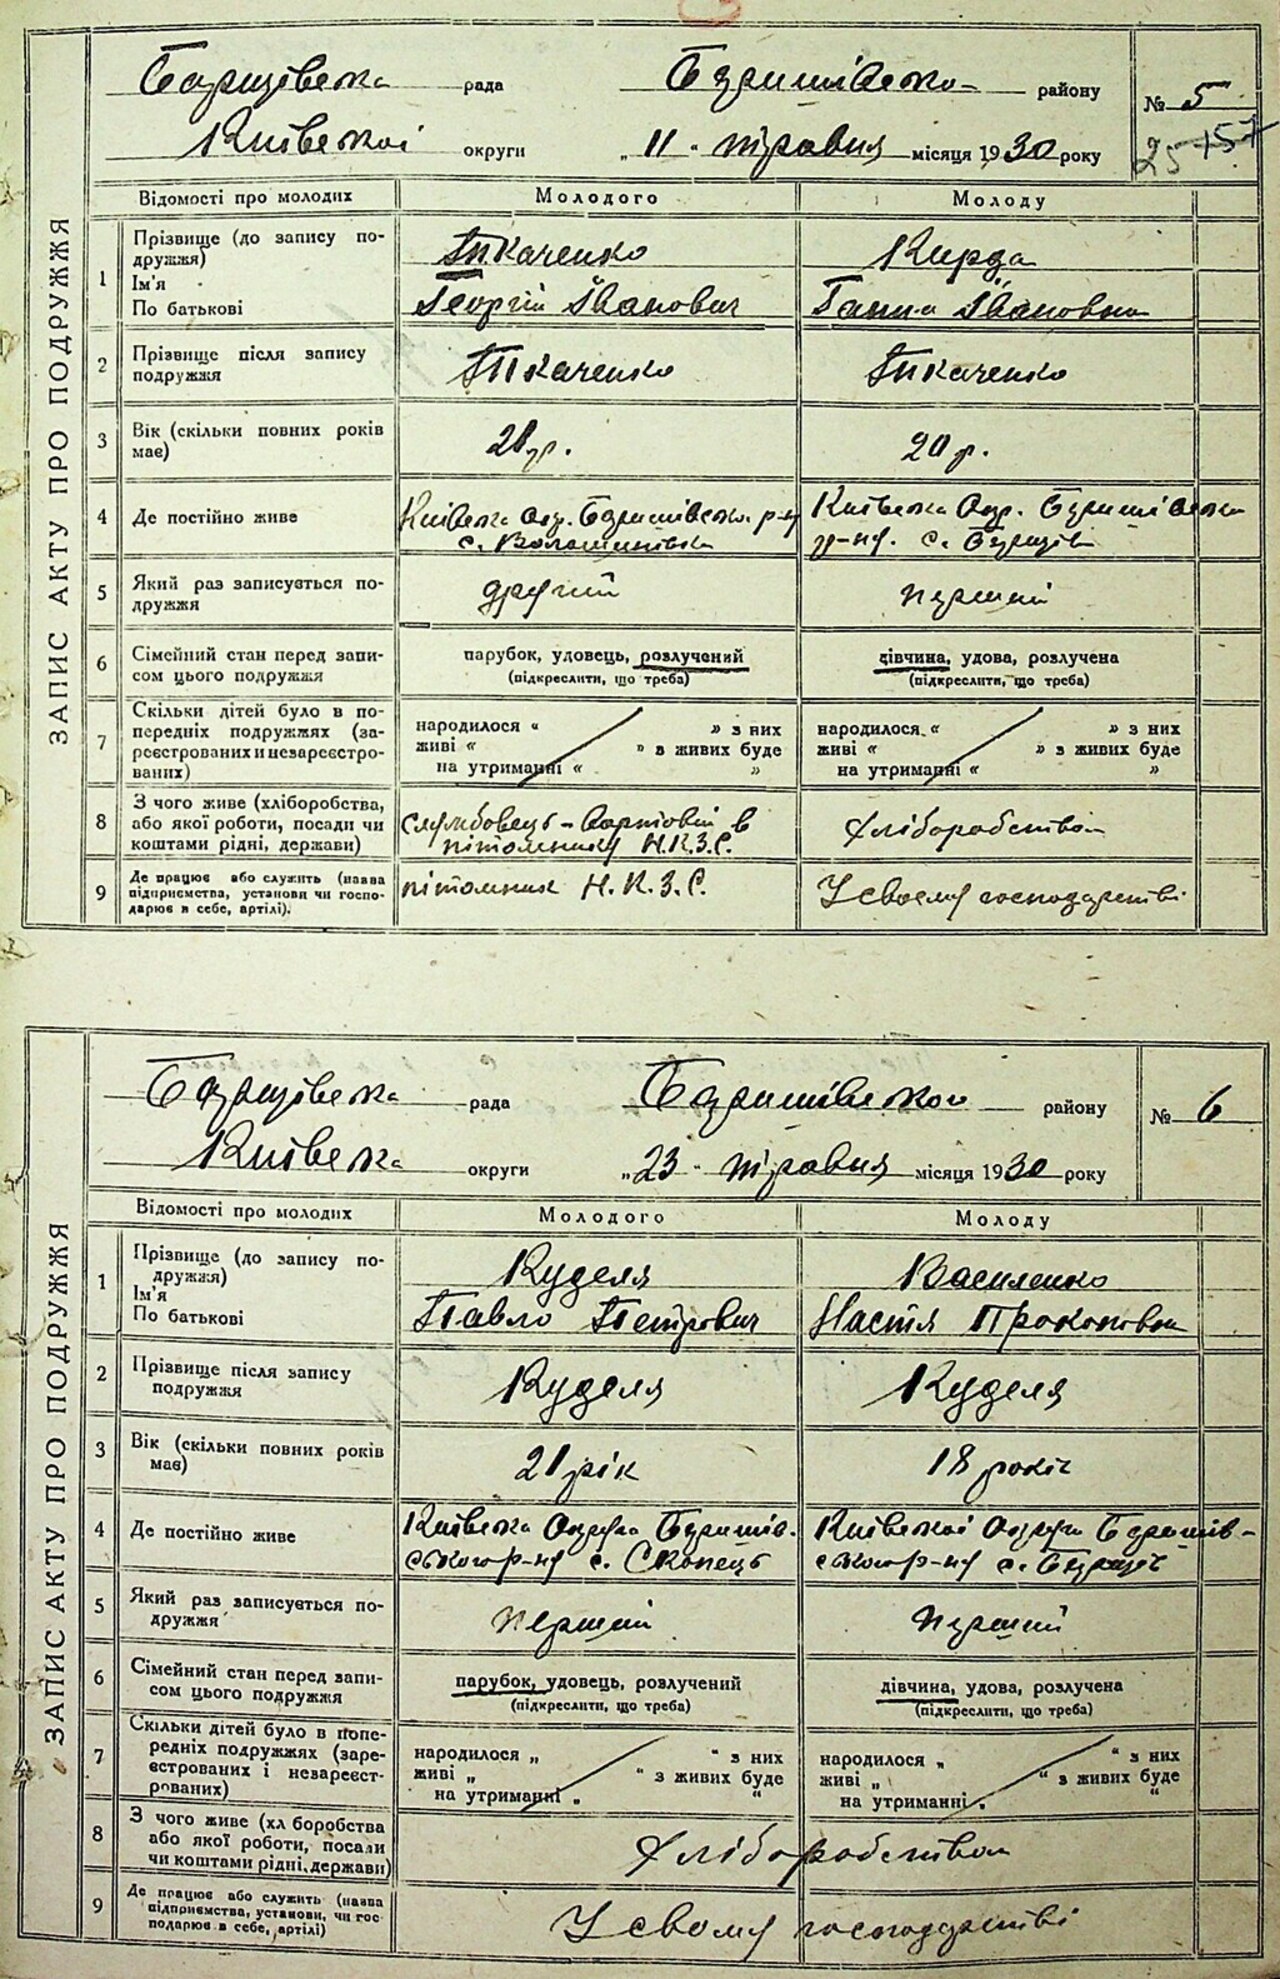 ЗАПИС АКТУ ПРО ПОДРУЖЖЯ
Борщівська рада Баришівсько- району № 5
Київської округи „ 11 " травня місяця 1930 року 25 +57
Відомості про молодих Молодого Молоду
1 Прізвище (до запису по-
дружжя) Ткаченко Кирда
Ім'я
По батькові Георгій Іванович Ганна Івановна
2 Прізвище після запису
подружжя Ткаченко Ткаченко
3 Вік (скільки повних років
має) р. 20 р.
4 Де постійно живе Київська Окр. Баришівська р-ну Київська Окр. Баришівська
с. Волошинівка р-ну. с. Борщів
5 Який раз записується по-
дружжя другий перший
6 Сімейний стан перед запи-
сом цього подружжя парубок, удовець, розлучений дівчина, удова, розлучена
(підкреслити, що треба) (підкреслити, що треба)
7 Скільки дітей було в по-
передніх подружжях (за-
реєстрованих и незареєстро-
ваних) народилося “ ” з них народилося “ ” з них
живі “ ” з живих буде живі “ ” з живих буде
на утриманні “ ” на утриманні “ ”
8 З чого живе (хліборобства,
або якої роботи, посади чи
коштами рідні, держави) службовець – вартовий в
пітомнику Н.К.З.С. Хліборобством
9 Де працює або служить (назва
підприємства, установи чи госпо-
дарює в себе, артілі). пітомник Н.К.З.С. У своєму господарстві
ЗАПИС АКТУ ПРО ПОДРУЖЖЯ
Борщівська рада Баришівської району № 6
Київська округи „ 23 " травня місяця 1930 року
Відомості про молодих Молодого Молоду
1 Прізвище (до запису по-
дружжя) Куделя Василенко
Ім'я
По батькові Павло Петрович Настя Прокоповна
2 Прізвище після запису
подружжя Куделя Куделя
3 Вік (скільки повних років
має) 21 рік 18 років
4 Де постійно живе Київська Округа Баришів- Київської Округи Баришів-
ського р-ну с. Скопець ського р-ну с. Борщів
5 Який раз записується по-
дружжя перший перший
6 Сімейний стан перед запи-
сом цього подружжя парубок, удовець, розлучений дівчина, удова, розлучена
(підкреслити, що треба) (підкреслити, що треба)
7 Скільки дітей було в попе-
редніх подружжях (заре-
єстрованих і незареєст-
рованих) народилося „ “ з них народилося „ “ з них
живі „ “ з живих буде живі „ “ з живих буде
на утриманні „ “ на утриманні „ “
8 З чого живе (хл боробства
або якої роботи, посади
чи коштами рідні, держави) Хліборобством
9 Де працює або служить (назва
підприємства, установи, чи гос
подарює в себе, артілі) У свому господарстві